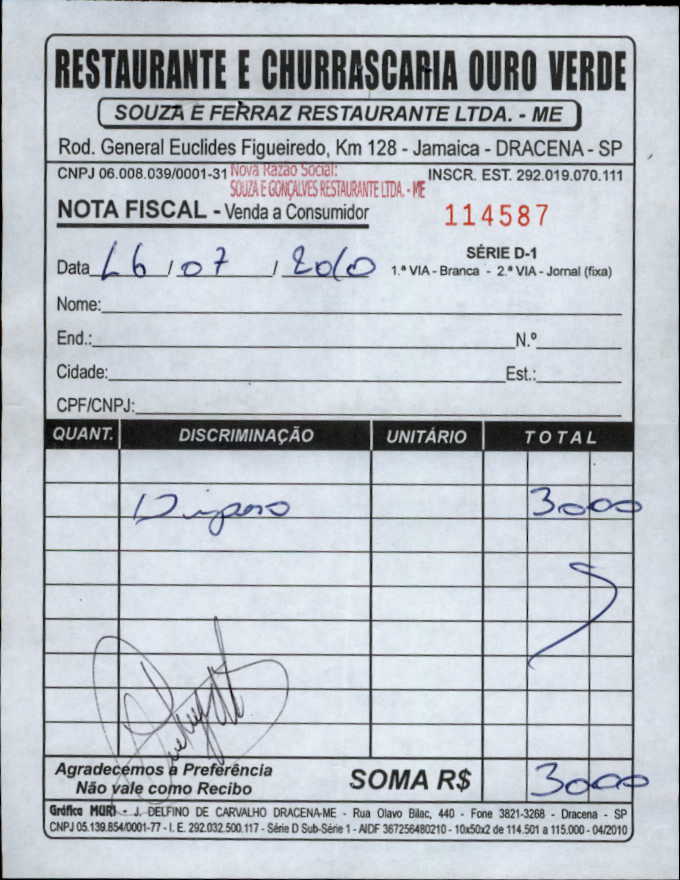 RESTAURANTE E CHURRASCARIA OURO VERDE
SOUZA E FERRAZ RESTAURANTE LTDA. - ME
Rod. General Euclides Figueiredo, Km 128 - Jamaica - DRACENA - SP
CNPJ 06.008.039/0001-31 Nova Razão Social: INSCR. EST. 292.019.070.111
SOUZA E GONÇALVES RESTAURANTE LTDA. - ME
NOTA FISCAL - Venda a Consumidor 114587
SÉRIE D-1
Data 26/07/2010 1.ª VIA - Branca - 2.ª VIA - Jornal (fixa)
Nome:
End.: N.º
Cidade: Est.:
CPF/CNPJ:
QUANT. DISCRIMINAÇÃO UNITÁRIO TOTAL
3000
Agradecemos a Preferência
Não vale como Recibo
SOMA R$ 3000
Gráfica MURI - J. DELFINO DE CARVALHO DRACENA-ME - Rua Olavo Bilac, 440 - Fone 3821-3268 - Dracena - SP
CNPJ 05.139.854/0001-77 - I. E. 292.032.500.117 - Série D Sub-Série 1 - AIDF 367256480210 - 10x50x2 de 114.501 a 115.000 - 04/2010